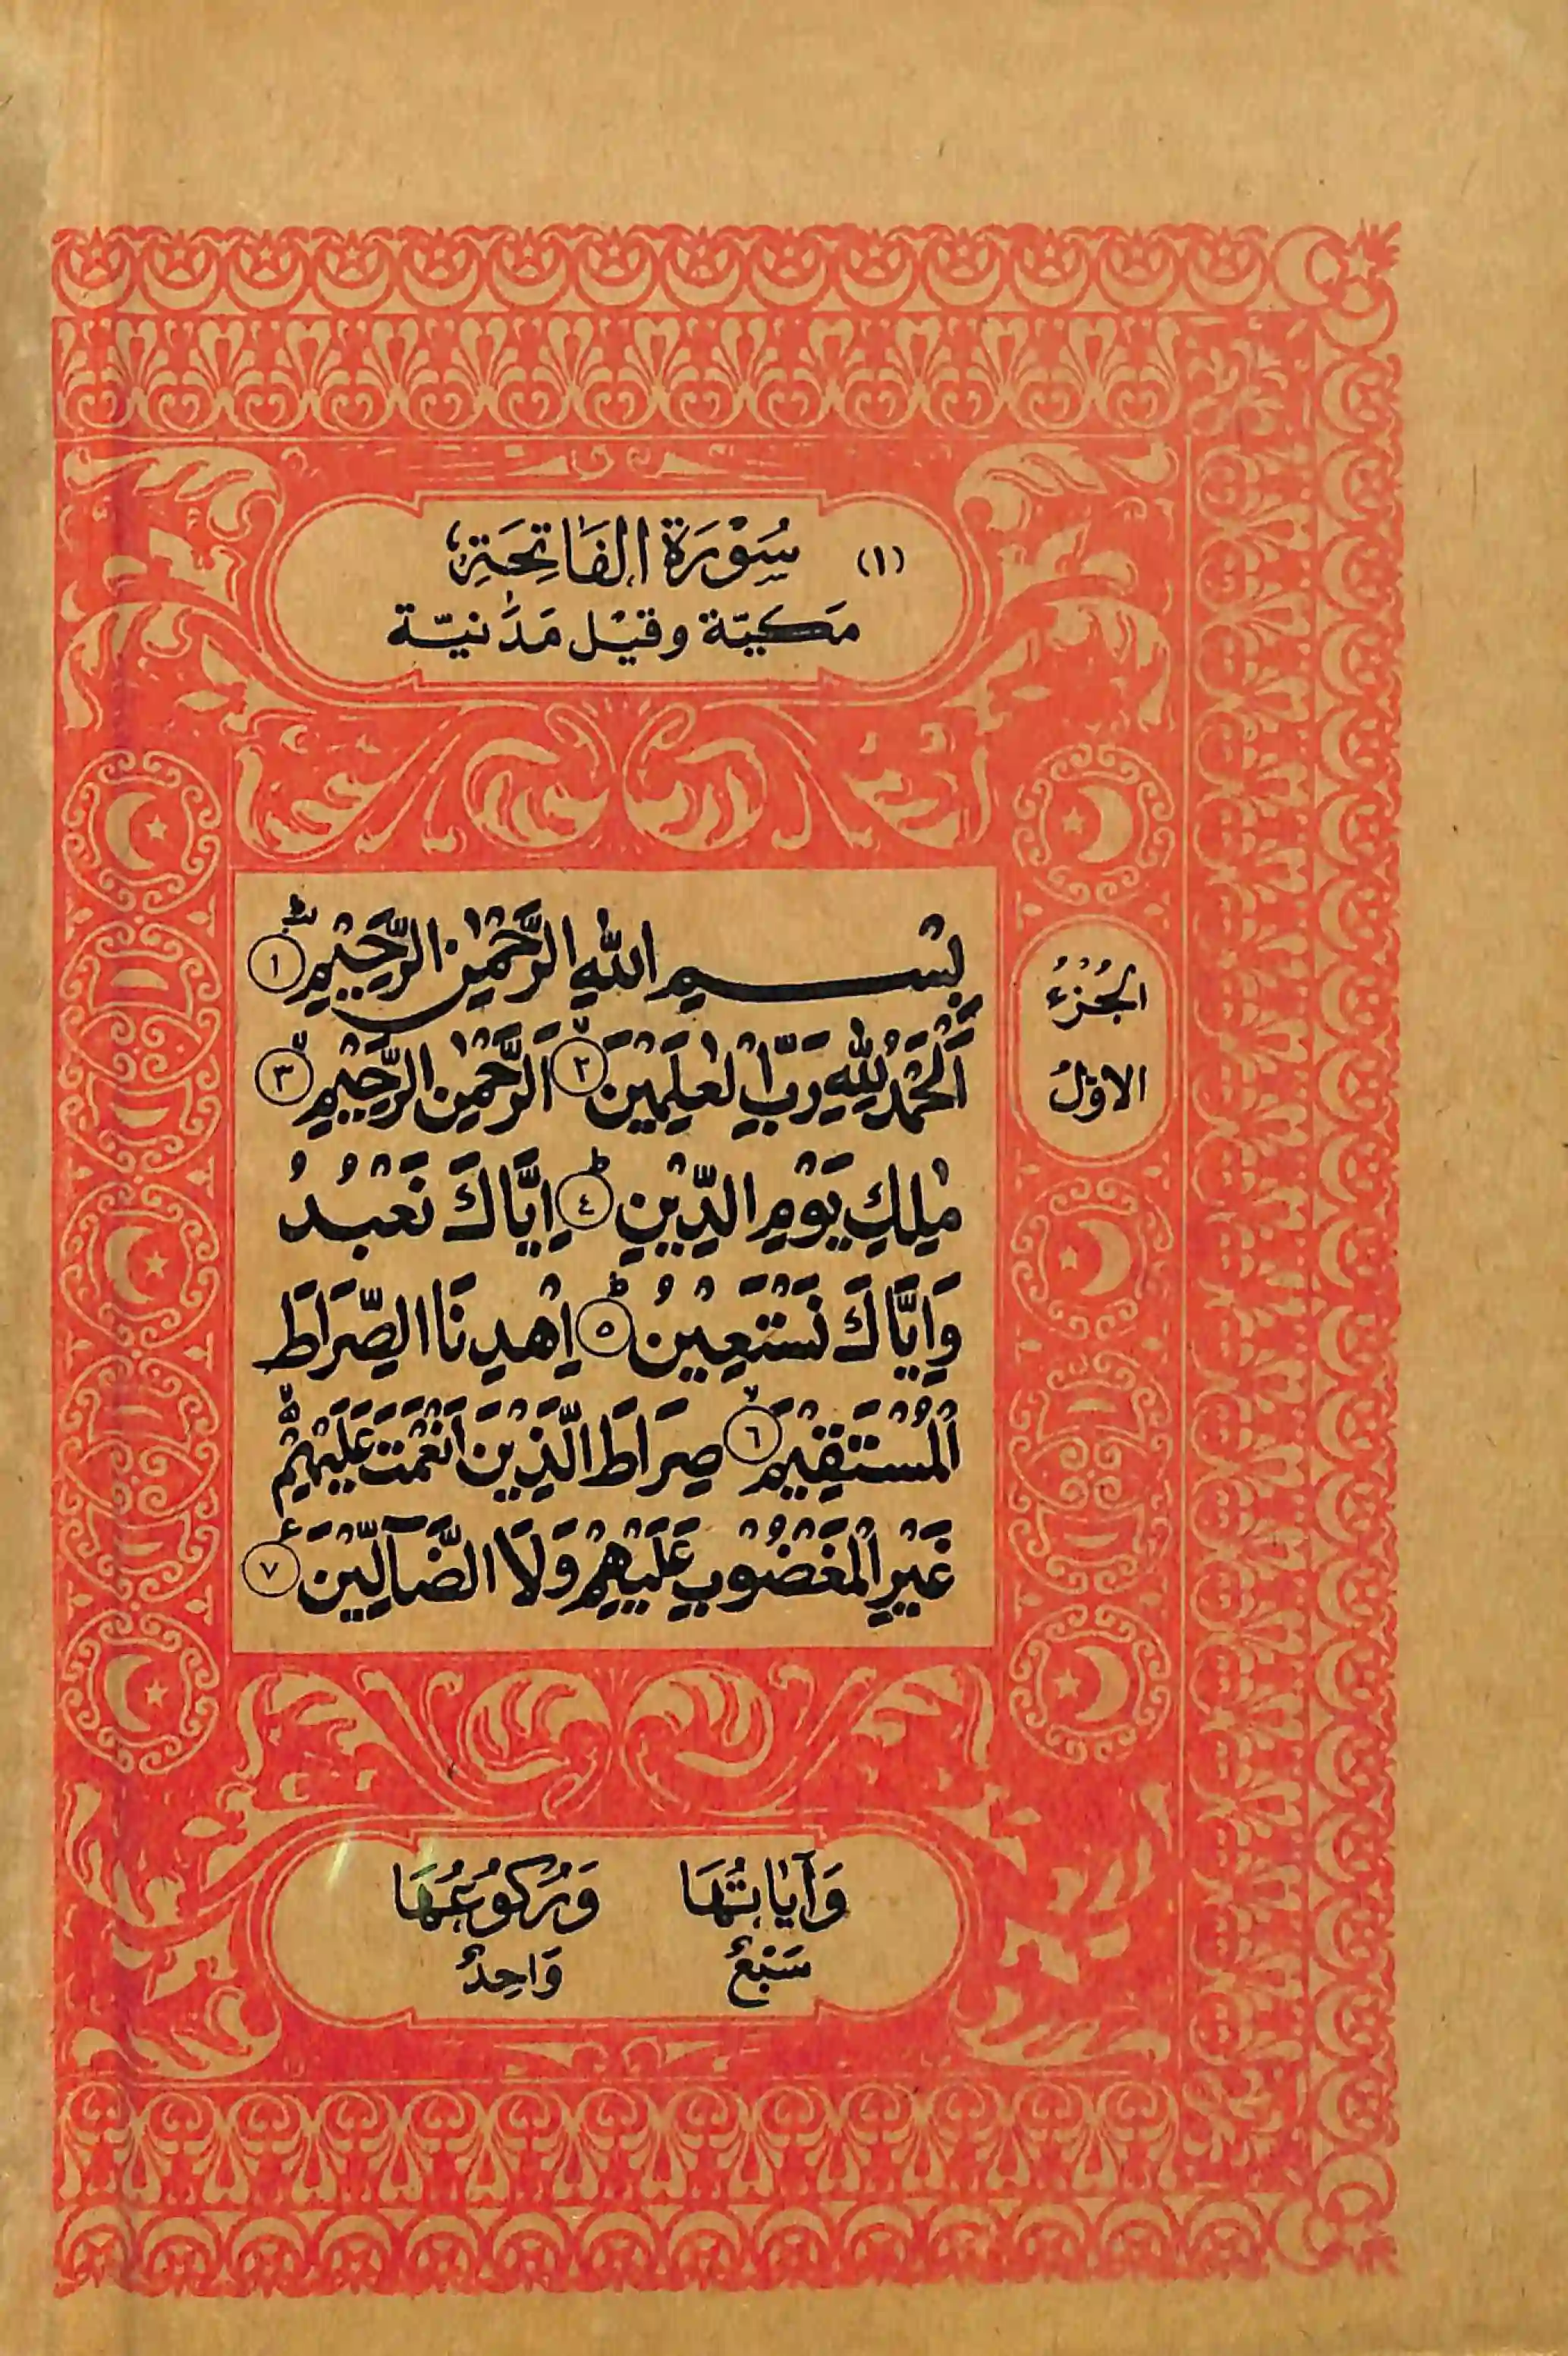 (١) سُوْرَةُ الفَاتِحَةِ
مَكيّة وقيْل مَدَنيّة
الجُزْءُ
الاوّلُ
بِسْمِ اللّٰهِ الرَّحْمٰنِ الرَّحِيْمِ ۙ ١
اَلْحَمْدُ لِلّٰهِ رَبِّ الْعٰلَمِيْنَ ۙ ٢ اَلرَّحْمٰنِ الرَّحِيْمِ ۙ ٣
مٰلِكِ يَوْمِ الدِّيْنِ ؕ ٤ اِيَّاكَ نَعْبُدُ
وَاِيَّاكَ نَسْتَعِيْنُ ؕ ٥ اِهْدِنَا الصِّرَاطَ
الْمُسْتَقِيْمَ ۙ ٦ صِرَاطَ الَّذِيْنَ اَنْعَمْتَ عَلَيْهِمْ ۙ
غَيْرِ الْمَغْضُوْبِ عَلَيْهِمْ وَلَا الضَّآلِّيْنَ ع ٧
وَآيَاتُهَا وَرُكُوعُهَا
سَبْعٌ وَاحِدٌ